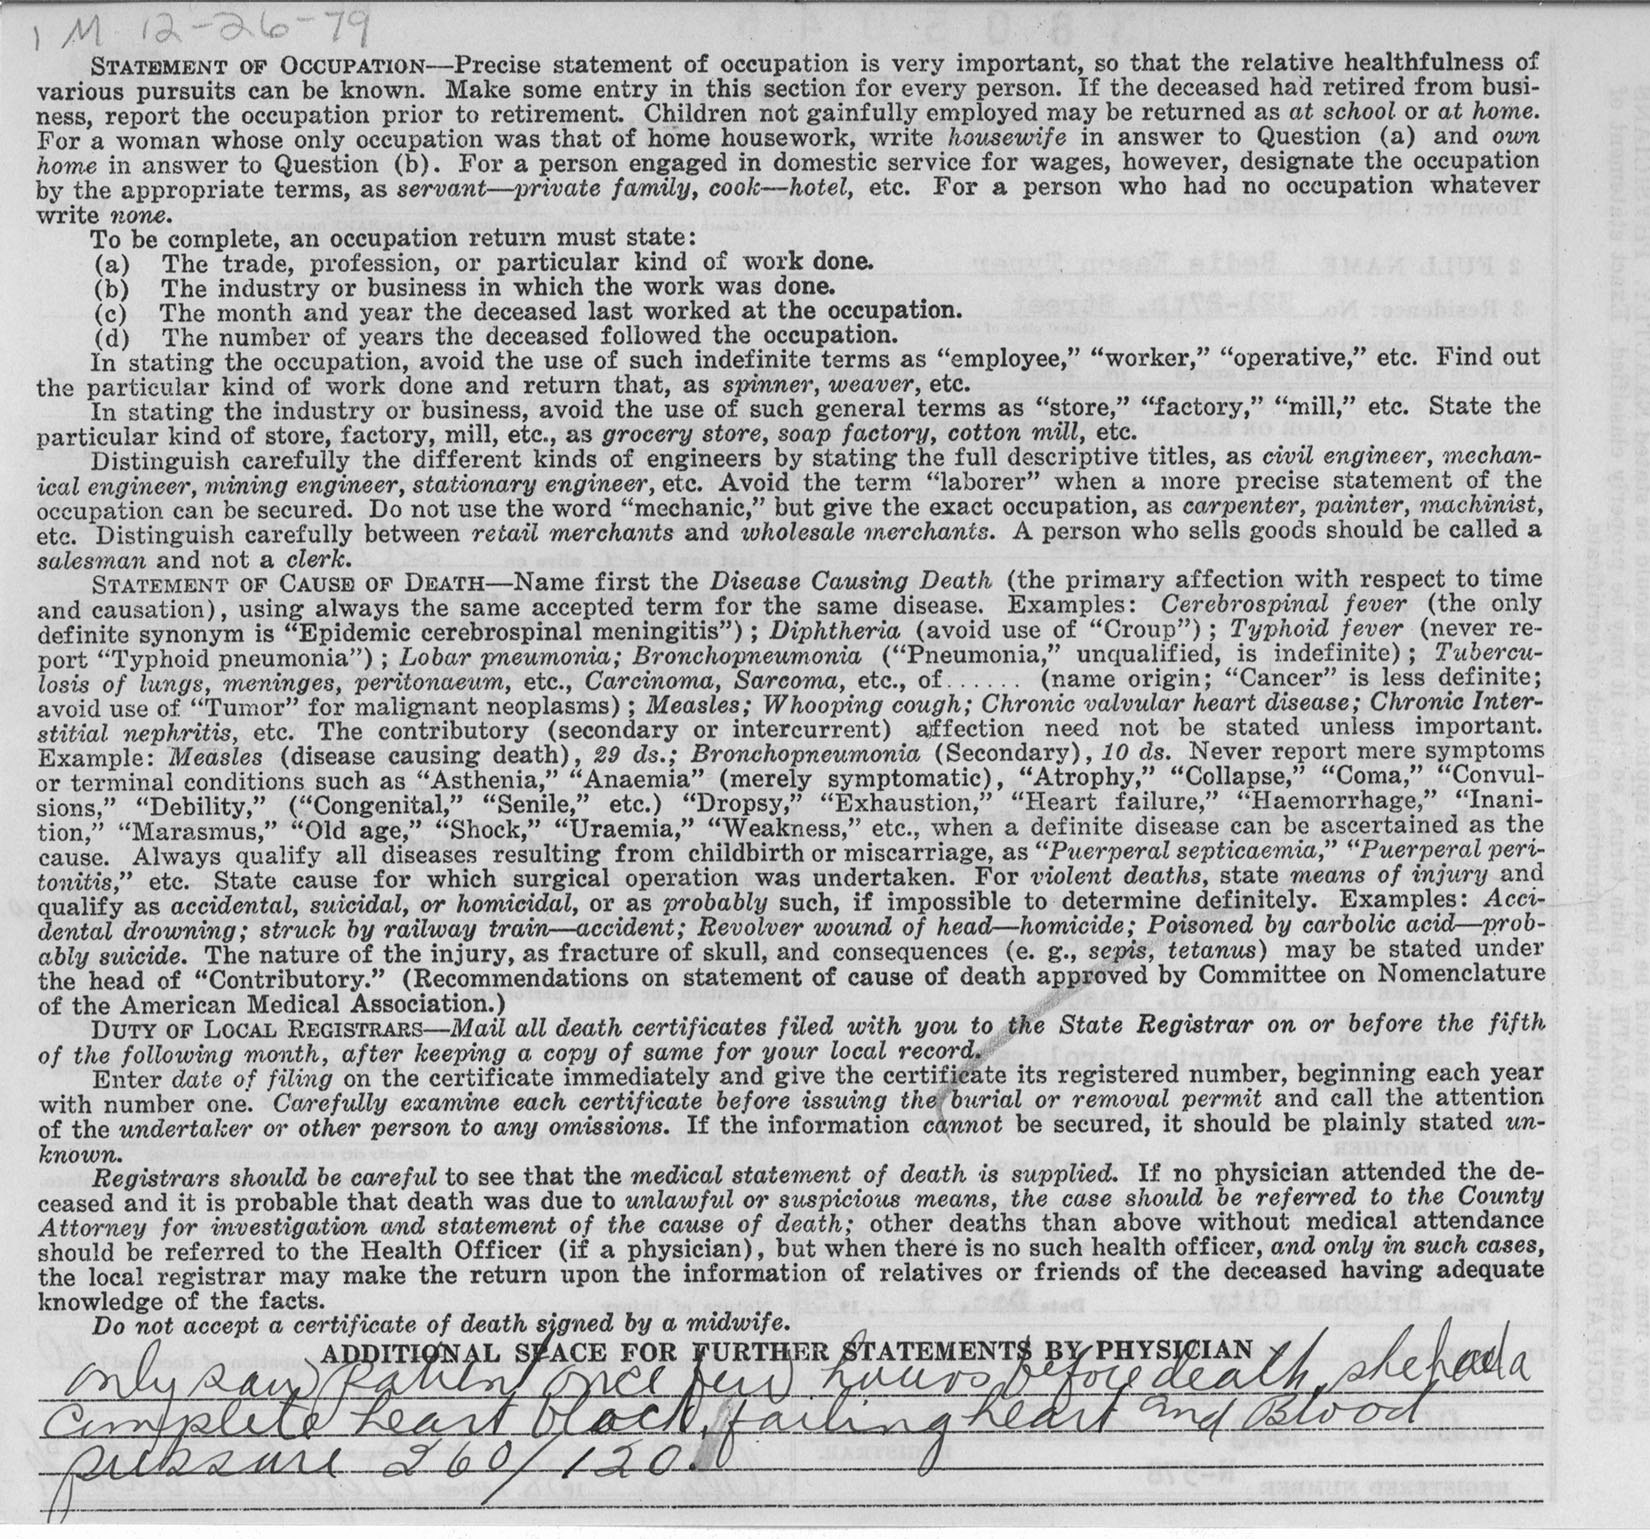 1 M 12-26-79
STATEMENT OF OCCUPATION—Precise statement of occupation is very important, so that the relative healthfulness of
various pursuits can be known. Make some entry in this section for every person. If the deceased had retired from busi-
ness, report the occupation prior to retirement. Children not gainfully employed may be returned as at school or at home.
For a woman whose only occupation was that of home housework, write housewife in answer to Question (a) and own
home in answer to Question (b). For a person engaged in domestic service for wages, however, designate the occupation
by the appropriate terms, as servant—private family, cook—hotel, etc. For a person who had no occupation whatever
write none.
To be complete, an occupation return must state:
(a) The trade, profession, or particular kind of work done.
(b) The industry or business in which the work was done.
(c) The month and year the deceased last worked at the occupation.
(d) The number of years the deceased followed the occupation.
In stating the occupation, avoid the use of such indefinite terms as “employee,” “worker,” “operative,” etc. Find out
the particular kind of work done and return that, as spinner, weaver, etc.
In stating the industry or business, avoid the use of such general terms as “store,” “factory,” “mill,” etc. State the
particular kind of store, factory, mill, etc., as grocery store, soap factory, cotton mill, etc.
Distinguish carefully the different kinds of engineers by stating the full descriptive titles, as civil engineer, mechan-
ical engineer, mining engineer, stationary engineer, etc. Avoid the term “laborer” when a more precise statement of the
occupation can be secured. Do not use the word “mechanic,” but give the exact occupation, as carpenter, painter, machinist,
etc. Distinguish carefully between retail merchants and wholesale merchants. A person who sells goods should be called a
salesman and not a clerk.
STATEMENT OF CAUSE OF DEATH—Name first the Disease Causing Death (the primary affection with respect to time
and causation), using always the same accepted term for the same disease. Examples: Cerebrospinal fever (the only
definite synonym is “Epidemic cerebrospinal meningitis”); Diphtheria (avoid use of “Croup”); Typhoid fever (never re-
port “Typhoid pneumonia”); Lobar pneumonia; Bronchopneumonia (“Pneumonia,” unqualified, is indefinite); Tubercu-
losis of lungs, meninges, peritonaeum, etc., Carcinoma, Sarcoma, etc., of...... (name origin; “Cancer” is less definite;
avoid use of “Tumor” for malignant neoplasms); Measles; Whooping cough; Chronic valvular heart disease; Chronic Inter-
stitial nephritis, etc. The contributory (secondary or intercurrent) affection need not be stated unless important.
Example: Measles (disease causing death), 29 ds.; Bronchopneumonia (Secondary), 10 ds. Never report mere symptoms
or terminal conditions such as “Asthenia,” “Anaemia” (merely symptomatic), “Atrophy,” “Collapse,” “Coma,” “Convul-
sions,” “Debility,” (“Congenital,” “Senile,” etc.) “Dropsy,” “Exhaustion,” “Heart failure,” “Haemorrhage,” “Inani-
tion,” “Marasmus,” “Old age,” “Shock,” “Uraemia,” “Weakness,” etc., when a definite disease can be ascertained as the
cause. Always qualify all diseases resulting from childbirth or miscarriage, as “Puerperal septicaemia,” “Puerperal peri-
tonitis,” etc. State cause for which surgical operation was undertaken. For violent deaths, state means of injury and
qualify as accidental, suicidal, or homicidal, or as probably such, if impossible to determine definitely. Examples: Acci-
dental drowning; struck by railway train—accident; Revolver wound of head—homicide; Poisoned by carbolic acid—prob-
ably suicide. The nature of the injury, as fracture of skull, and consequences (e. g., sepis, tetanus) may be stated under
the head of “Contributory.” (Recommendations on statement of cause of death approved by Committee on Nomenclature
of the American Medical Association.)
DUTY OF LOCAL REGISTRARS—Mail all death certificates filed with you to the State Registrar on or before the fifth
of the following month, after keeping a copy of same for your local record.
Enter date of filing on the certificate immediately and give the certificate its registered number, beginning each year
with number one. Carefully examine each certificate before issuing the burial or removal permit and call the attention
of the undertaker or other person to any omissions. If the information cannot be secured, it should be plainly stated un-
known.
Registrars should be careful to see that the medical statement of death is supplied. If no physician attended the de-
ceased and it is probable that death was due to unlawful or suspicious means, the case should be referred to the County
Attorney for investigation and statement of the cause of death; other deaths than above without medical attendance
should be referred to the Health Officer (if a physician), but when there is no such health officer, and only in such cases,
the local registrar may make the return upon the information of relatives or friends of the deceased having adequate
knowledge of the facts.
Do not accept a certificate of death signed by a midwife.
ADDITIONAL SPACE FOR FURTHER STATEMENTS BY PHYSICIAN
only saw patient once few hours before death, she had a
complete heart block, failing heart and Blood
pressure 260/120.